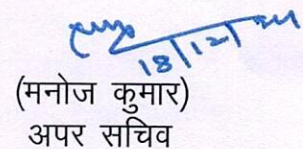 18/12/24
(मनोज कुमार)
अपर सचिव